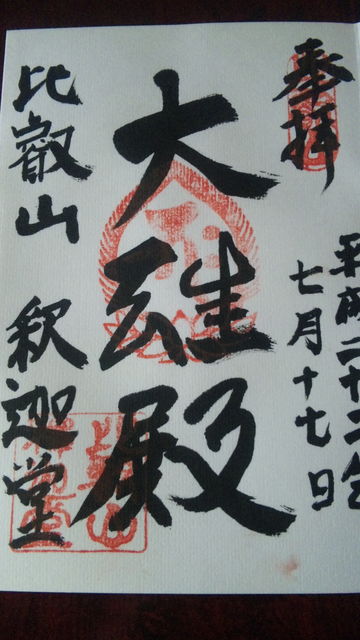 奉拝
平成二十二年
七月十七日
大雄殿
比叡山 釈迦堂